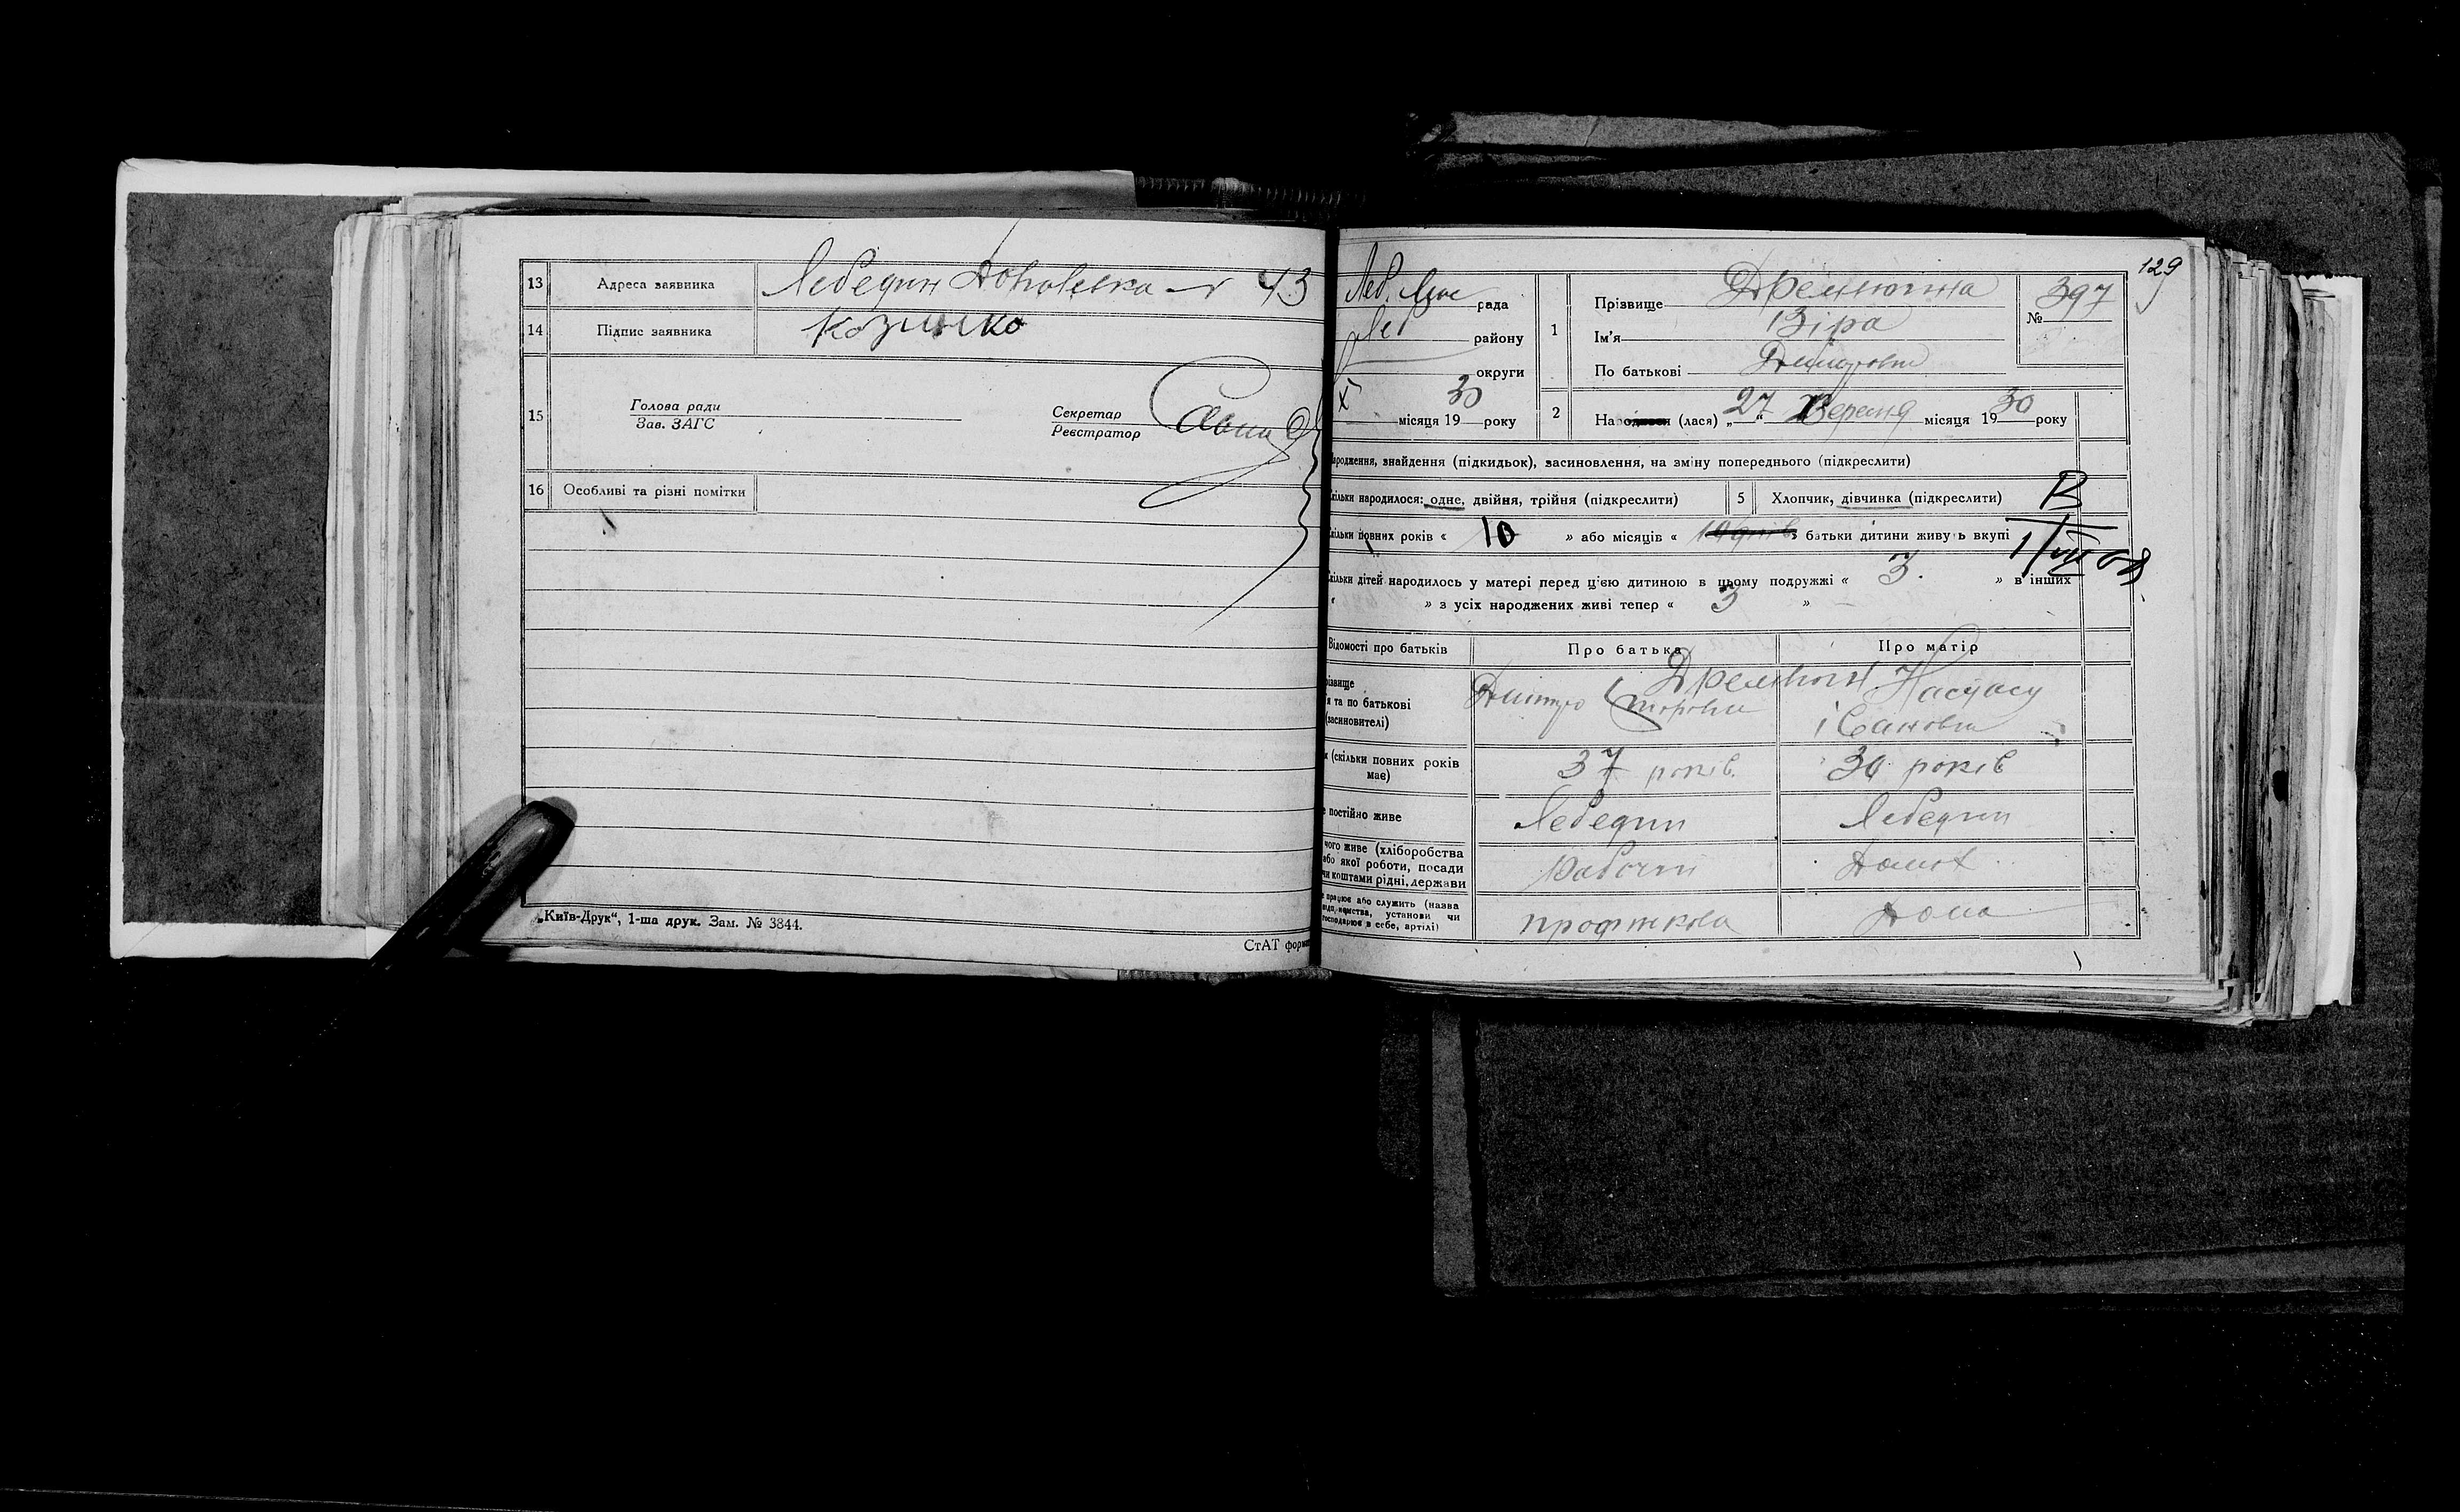 13 Адреса заявника Лебедин 43
14 Підпис заявника Козинко
15 Голова ради
Зав. ЗАГС
Секретар
Реєстратор
16 Особливі та різні помітки
„Київ-Друк“, 1-ша друк. Зам. № 3844.
СтАТ форм
129
Леб. рада
Леб району
округи
X місяця 1930 року
1 Прізвище Дремлюгина
№ 397
Ім'я Віра
По батькові Дмитровна
2 Народився (лася) „27“ Вересня місяця 1930 року
ародження, знайдення (підкидьок), засиновлення, на зміну попереднього (підкреслити)
кільки народилося: одне, двійня, трійня (підкреслити) 5 Хлопчик, дівчинка (підкреслити)
В
кільки повних років « 10 » або місяців « батьки дитини живуть вкупі
кільки дітей народилось у матері перед цією дитиною в цьому подружжі « 3. » в інших
« » з усіх народжених живі тепер « 3 »
Відомості про батьків Про батька Про матір
різвище
я та по батькові
(засиновителі)
Дремлюги
Дмитро
Настасу
івановна
к (скільки повних років
має)
37 років. 30 років
е постійно живе Лебедин Лебедин
чого живе (хліборобства
або якої роботи, посади
чи коштами рідні, держави
Рабочий
е працює або служить (назва
підприємства, установи чи
господарює в себе, артілі)
Дома